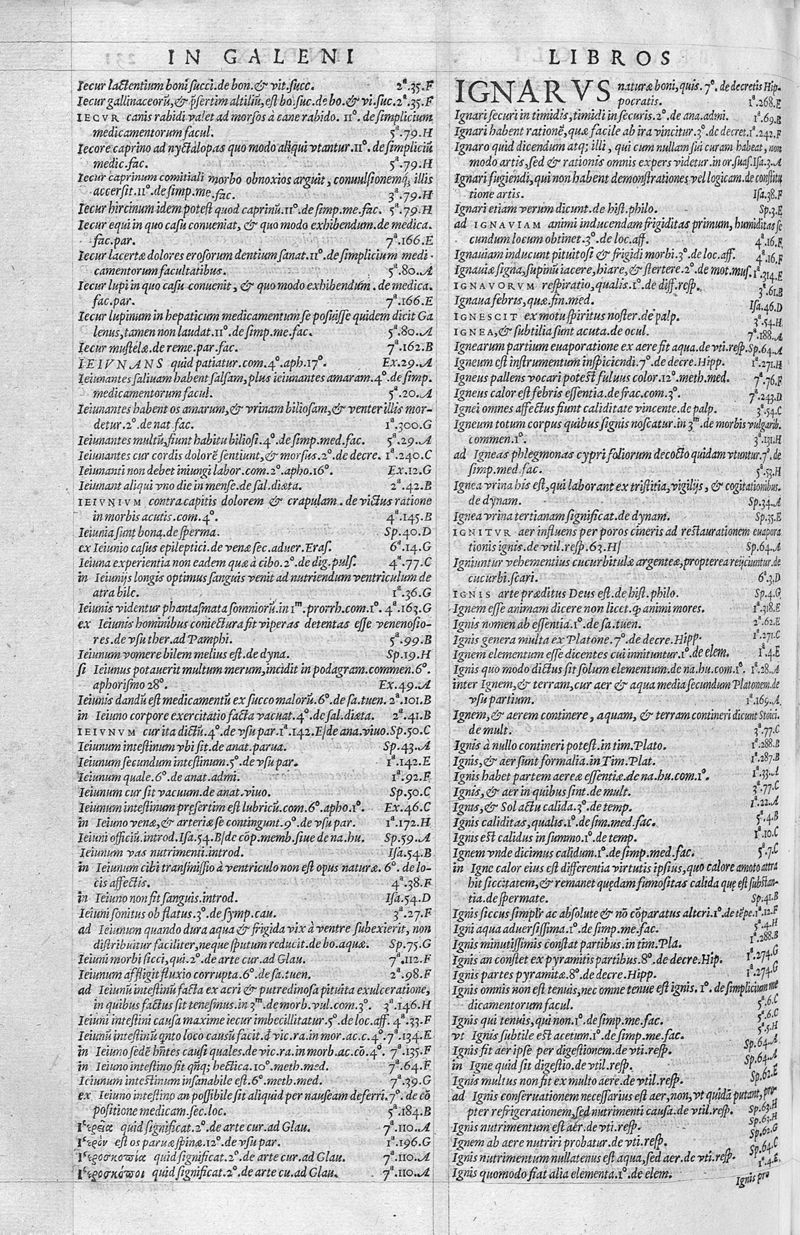 IN GALENI
Iecur lactentium boni succi.de bon.& vit.succ. 2ª.35.F
Iecur gallinaceorũ,& p̃sertim altiliũ, est bo.suc.de bo.& vi.suc. 2ª.35.F
IECVR canis rabidi valet ad morsos à cane rabido. 11°.de simplicium
medicamentorum facul. 5ª.79.H
Iecore caprino ad nyctalopas quo modo aliqui vtantur.11°.de simpliciũ
medic.fac. 5ª.79.H
Iecur caprinum comitiali morbo obnoxios arguit, conuulsionemq́; illis
accersit.11°.de simp.me.fac. 3ª.79.H
Iecur hircinum idem potest quod caprinũ.11°.de simp.me.fac. 5ª.79.H
Iecur equi in quo casu conueniat, & quo modo exhibendum.de medica.
fac.par. 7ª.166.E
Iecur lacertæ dolores erosorum dentium sanat.11°.de simplicium medi-
camentorum facultatibus. 5ª.80.A
Iecur lupi in quo casu conuenit, & quo modo exhibendum.de medica.
fac.par. 7ª.166.E
Iecur lupinum in hepaticum medicamentum se posuisse quidem dicit Ga
lenus,tamen non laudat.11°.de simp.me.fac. 5ª.80.A
Iecur mustelæ.de reme.par.fac. 7ª.162.B
IEIVNANS quid patiatur.com.4°.aph.17°. Ex.29.A
Ieiunantes saliuam habent salsam, plus ieiunantes amaram.4°.de simp.
medicamentorum facul. 5ª.20.A
Ieiunantes habent os amarum,& vrinam biliosam,& venter illis mor-
detur.2°.de nat.fac. 1ª.300.G
Ieiunantes multũ,fiunt habitu biliosi.4°.de simp.med.fac. 5ª.29.A
Ieiunantes cur cordis dolorẽ sentiunt,& morsus.2°.de decre. 1ª.240.C
Ieiunanti non debet iniungi labor.com.2°.apho.16°. Ex.12.G
Ieiunant aliqui vno die in mense.de sal.diæta. 2ª.42.B
IEIVNIVM contra capitis dolorem & crapulam.de victus ratione
in morbis acutis.com.4°. 4ª.145.B
Ieiunia sunt bona.de sperma. Sp.40.D
ex Ieiunio casus epileptici.de venæ sec.aduer.Eras. 6ª.14.G
Ieiuna experientia non eadem quæ à cibo.2°.de dig.puls. 4ª.77.C
in Ieiunijs longis optimus sanguis venit ad nutriendum ventriculum de
atra bile. 1ª.36.G
Ieiunis videntur phantasmata somniorũ.in 1ᵐ.prorrh.com.1°. 4ª.163.G
ex Ieiunis hominibus coniectura fit viperas detentas esse venenosio-
res.de vsu ther.ad Pamphi. 5ª.99.B
Ieiunum vomere bilem melius est.de dyna. Sp.19.H
si Ieiunus potauerit multum merum,incidit in podagram.commen.6°.
aphorismo 28°. Ex.49.A
Ieiunis dandũ est medicamentũ ex succo malorũ.6°.de sa.tuen. 2ª.101.B
in Ieiuno corpore exercitatio facta vacuat.4°.de sal.diæta. 2ª.41.B
IEIVNVM cur ita dictũ.4°.de vsu par.1ª.142.E/de ana.viuo. Sp.50.C
Ieiunum intestinum vbi sit.de anat.parua. Sp.43.A
Ieiunum secundum intestinum.5°.de vsu par. 1ª.142.E
Ieiunum quale.6°.de anat.admi. 1ª.92.F
Ieiunum cur sit vacuum.de anat.viuo. Sp.50.C
Ieiunum intestinum presertim est lubricũ.com.6°.apho.1°. Ex.46.C
in Ieiuno venæ,& arteriæ se contingunt.9°.de vsu par. 1ª.172.H
Ieiuni officiũ.introd.Isa.54.B/de cõp.memb.siue de na.hu. Sp.59.A
Ieiunum vas nutrimenti.introd. Isa.54.B
in Ieiunum cibi transmissio à ventriculo non est opus naturæ. 6°.de lo-
cis affectis. 4ª.38.F
in Ieiuno non fit sanguis.introd. Isa.54.D
Ieiuni sonitus ob flatus.3°.de symp.cau. 3ª.27.F
ad Ieiunum quando dura aqua & frigida vix à ventre subexierit, non
distribuitur faciliter,neque sputum reducit.de bo.aquæ. Sp.75.G
Ieiuni morbi sicci,qui.2°.de arte cur.ad Glau. 7ª.112.F
Ieiunum affligit fluxio corrupta.6°.de sa.tuen. 2ª.98.F
ad Ieiunũ intestinũ facta ex acri & putredinosa pituita exulceratione,
in quibus factus sit tenesmus.in 3ᵐ.de morb.vul.com.3°. 3ª.146.H
Ieiuni intestini causa maxime iecur imbecillitatur.5°.de loc.aff. 4ª.33.F
Ieiunũ intestinũ qnto loco causũ facit.d̃ vic.ra.in mor.ac.c.4°. 7ª.134.E
in Ieiuno sedẽ hñtes causi quales.de vic.ra.in morb.ac.cõ.4°. 7ª.135.F
in Ieiuno intestino fit qñq; hectica.10°.meth.med. 7ª.64.F
Ieiunum intestinum insanabile est.6°.meth.med. 7ª.39.G
ex Ieiuno intestino an possibile sit aliquid per nauseam deferri.7°.de cõ
positione medicam.sec.loc. 5ª.184.B
quid significat.2°.de arte cur.ad Glau. 7ª.110.A
est os paruæ spinæ.12°.de vsu par. 1ª.196.G
quid significat.2°.de arte cur.ad Glau. 7ª.110.A
quid significat.2°.de arte cu.ad Glau. 7ª.110.A
LIBROS
IGNARVS naturæ boni,quis. 7°.de decretis Hip
pocratis. 1ª.268.E
Ignari securi in timidis,timidi in securis.2°.de ana.admi. 1ª.69.B
Ignari habent rationẽ, quæ facile ab ira vincitur.3°.de decret. 1ª.242.F
Ignaro quid dicendum atq; illi, qui cum nullam sui curam habeat, non
modo artis,sed & rationis omnis expers videtur.in or.suas. Isa.3.A
Ignari fugiendi,qui non habent demonstrationes vel logicam.de constitu
tione artis. Isa.38.F
Ignari etiam verum dicunt.de hist.philo. Sp.3.E
ad IGNAVIAM animi inducendam frigiditas primum, humiditas se
cundum locum obtinet.3°.de loc.aff. 4ª.16.F
Ignauiam inducunt pituitosi & frigidi morbi.3°.de loc.aff. 4ª.16.F
Ignauiæ signa,supinũ iacere, hiare, & stertere.2°.de mot.mus. 1ª.314.E
IGNAVORVM respiratio,qualis.1°.de diff.resp. 3ª.61.B
Ignaua febris,quæ.fin.med. Isa.46.D
IGNESCIT ex motu spiritus noster.de palp. 3ª.54.H
IGNEA,& subtilia sunt acuta.de ocul. 7ª.188.A
Ignearum partium euaporatione ex aere fit aqua.de vti.resp. Sp.64.A
Igneum est instrumentum inspiciendi.7°.de decre.Hipp. 1ª.271.H
Igneus pallens vocari potest fuluus color.12°.meth.med. 7ª.76.F
Igneus calor est febris essentia.de frac.com.3°. 7ª.243.D
Ignei omnes affectus fiunt caliditate vincente.de palp. 3ª.54.C
Igneum totum corpus quibus signis noscatur.in 3ᵐ.de morbis vulgarib.
commen.1°. 3ª.131.H
ad Igneas phlegmonas cypri foliorum decocto quidam vtuntur.7°.de
simp.med.fac. 5ª.53.H
Ignea vrina his est, qui laborant ex tristitia,vigilijs, & cogitationibus.
de dynam. Sp.34.A
Ignea vrina tertianam significat.de dynam. Sp.35.E
IGNITVR aer influens per poros cineris ad restaurationem euapora
tionis ignis.de vtil.resp.63.H/ Sp.64.A
Igniuntur vehementius cucurbitulæ argenteæ,propterea reijciuntur.de
cucurbi.scari. 6ª.3.D
IGNIS arte præditus Deus est.de hist.philo. Sp.4.G
Ignem esse animam dicere non licet.q̃ animi mores. 1ª.318.E
Ignis nomen ab essentia.1°.de sa.tuen. 2ª.62.E
Ignis genera multa ex Platone.7°.de decre.Hipp. 1ª.271.C
Ignem elementum esse dicentes cui innituntur.1°.de elem. 1ª.4.E
Ignis quo modo dictus sit solum elementum.de na.hu.com.1°. 1ª.28.A
inter Ignem,& terram,cur aer & aqua media secundum Platonem.de
vsu partium. 1ª.169.A
Ignem,& aerem continere , aquam, & terram contineri dicunt Stoici.
de mult. 3ª.77.C
Ignis à nullo contineri potest.in tim.Plato. 1ª.288.B
Ignis,& aer sunt formalia.in Tim.Plat. 1ª.287.B
Ignis habet partem aereæ essentiæ.de na.hu.com.1°. 1ª.33.A
Ignis,& aer in quibus sint.de mult. 3ª.77.C
Ignis,& Sol actu calida.3°.de temp. 1ª.22.A
Ignis caliditas,qualis.1°.de sim.med.fac. 5ª.4.B
Ignis est calidus in summo.1°.de temp. 1ª.10.C
Ignem vnde dicimus calidum.1°.de simp.med.fac. 5ª.7.C
in Igne calor eius est differentia virtutis ipsius,quo calore amoto attra
hit siccitatem,& remanet quędam fumositas calida quę est substan-
tia.de spermate. Sp.41.B
Ignis siccus simplr̃ ac absolute & nõ cõparatus alteri.1°.de tẽpe. 1ª.12.F
Igni aqua aduersissima.1°.de simp.me.fac. 5ª.4.H
Ignis minutissimis constat partibus.in tim.Pla. 1ª.288.B
Ignis an constet ex pyramitis partibus.8°.de decre.Hip. 1ª.274.G
Ignis partes pyramitæ.8°.de decre.Hipp. 1ª.274.G
Ignis omnis non est tenuis,nec omne tenue est ignis. 1°.de simplicium me
dicamentorum facul. 5ª.6.C
Ignis qui tenuis,qui non.1°.de simp.me.fac. 5ª.6.C
vt Ignis subtile est acetum.1°.de simp.me.fac. 5ª.5.H
Ignis fit aer ipse per digestionem.de vti.resp. Sp.64.A
in Igne quid sit digestio.de vtil.resp. Sp.64.A
Ignis multus non fit ex multo aere.de vtil.resp. Sp.62.E
ad Ignis conseruationem necessarius est aer,non,vt quidã putant,pro-
pter refrigerationem,sed nutrimenti causa.de vtil.resp. Sp.63.H
Ignis nutrimentum est aer.de vti.resp. Sp.63.H
Ignem ab aere nutriri probatur.de vti.resp. Sp.62.G
Ignis nutrimentum nullatenus est aqua,sed aer.de vti.resp. Sp.64.C
Ignis quomodo fiat alia elementa.1°.de elem. 1ª.4.E.
Ignis pro